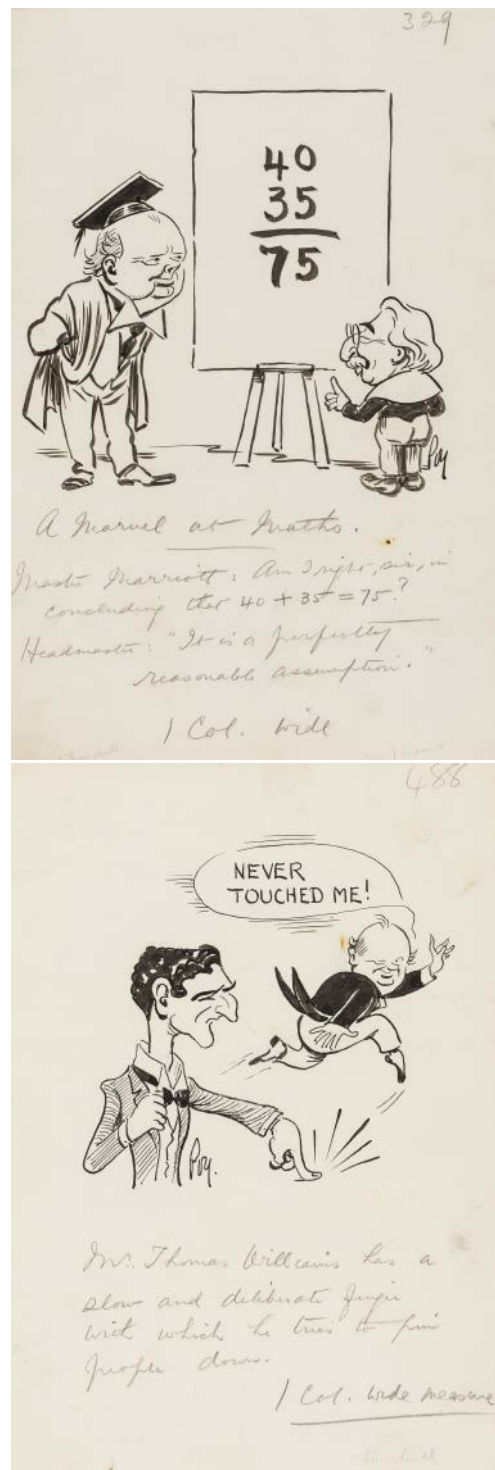 329
40
35
75
Poy
A Marvel at Maths.
Master Marriott: Am I right, sir, in
concluding that 40 + 35 = 75?
Headmaster: "It is a perfectly
reasonable assumption."
1 Col. wide
Churchill
488
NEVER
TOUCHED ME!
Poy.
Mr. Thomas Williams has a
slow and deliberate finger
with which he tries to pin
people down.
1 Col. wide measure
Churchill